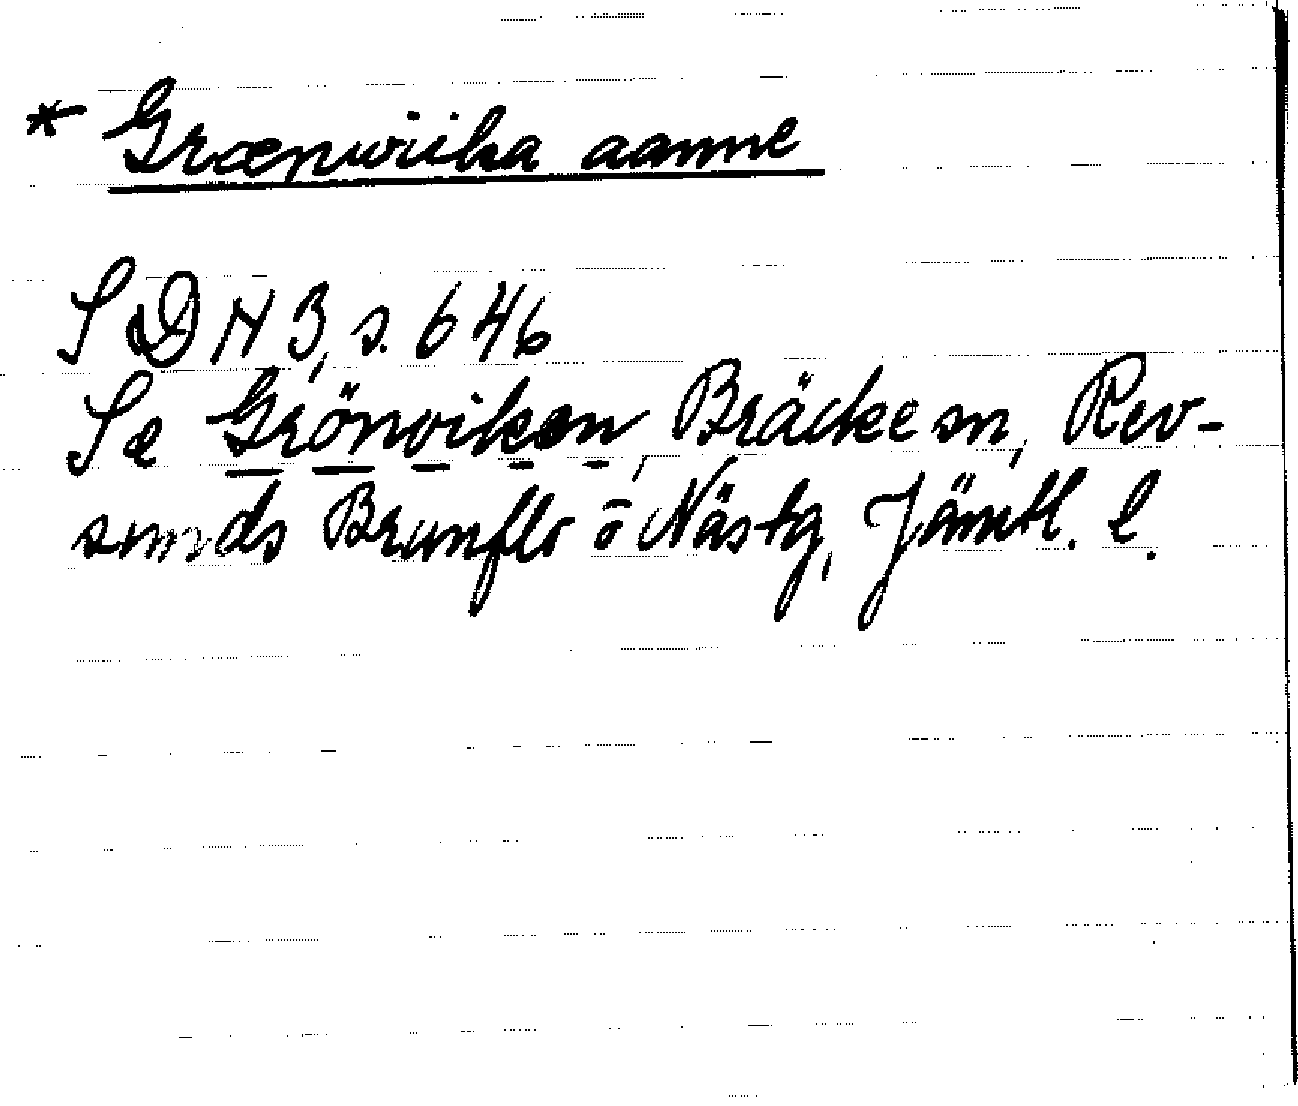 * Grænwiika aanne
SDN 3, s. 646
Se Grönviken, Bräcke sn, Rev-
sunds Brunflo o Näs tg, Jämtl. l.